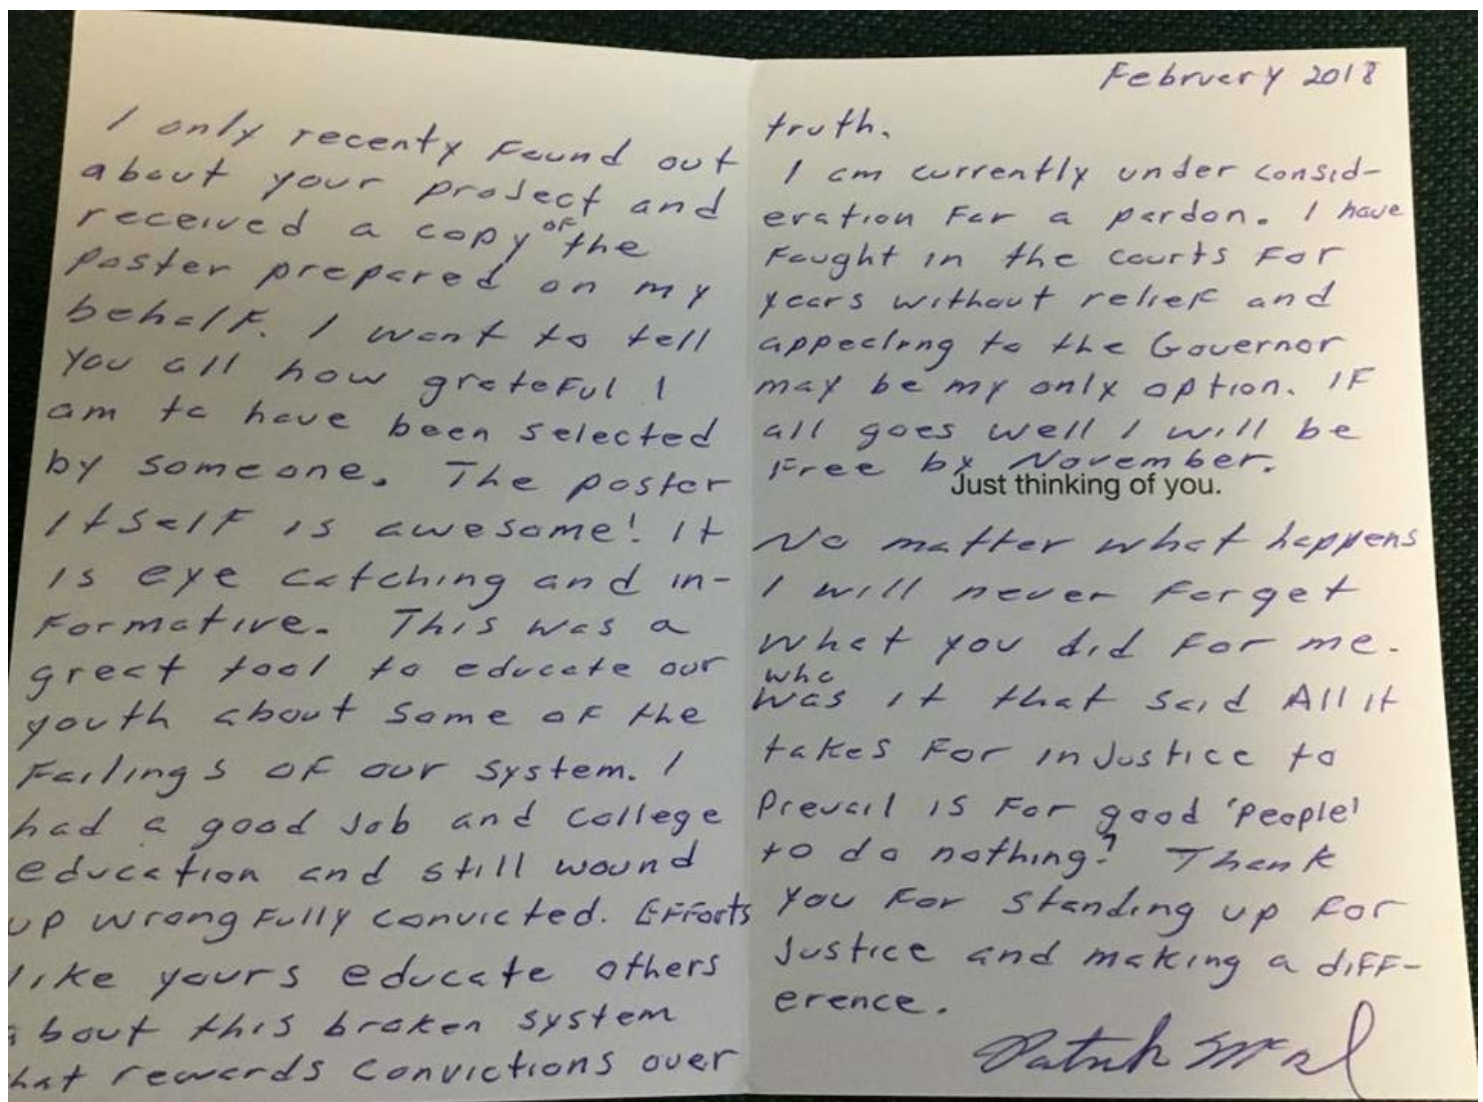 I only recenty found out
about your project and
received a copy of the
poster prepared on my
behalf. I want to tell
you all how grateful I
am to have been selected
by someone. The poster
itself is awesome! It
is eye catching and in-
formative. This was a
great tool to educate our
youth about some of the
failings of our system. I
had a good job and college
education and still wound
up wrongfully convicted. Efforts
like yours educate others
about this broken system
that rewards convictions over
February 2018
truth.
I am currently under consid-
eration for a pardon. I have
fought in the courts for
years without relief and
appealing to the Governor
may be my only option. If
all goes well I will be
free by November.
Just thinking of you.
No matter what happens
I will never forget
what you did for me.
who
was it that said All it
takes for injustice to
prevail is for good 'people'
to do nothing? Thank
you for standing up for
justice and making a diff-
erence.
Patrick